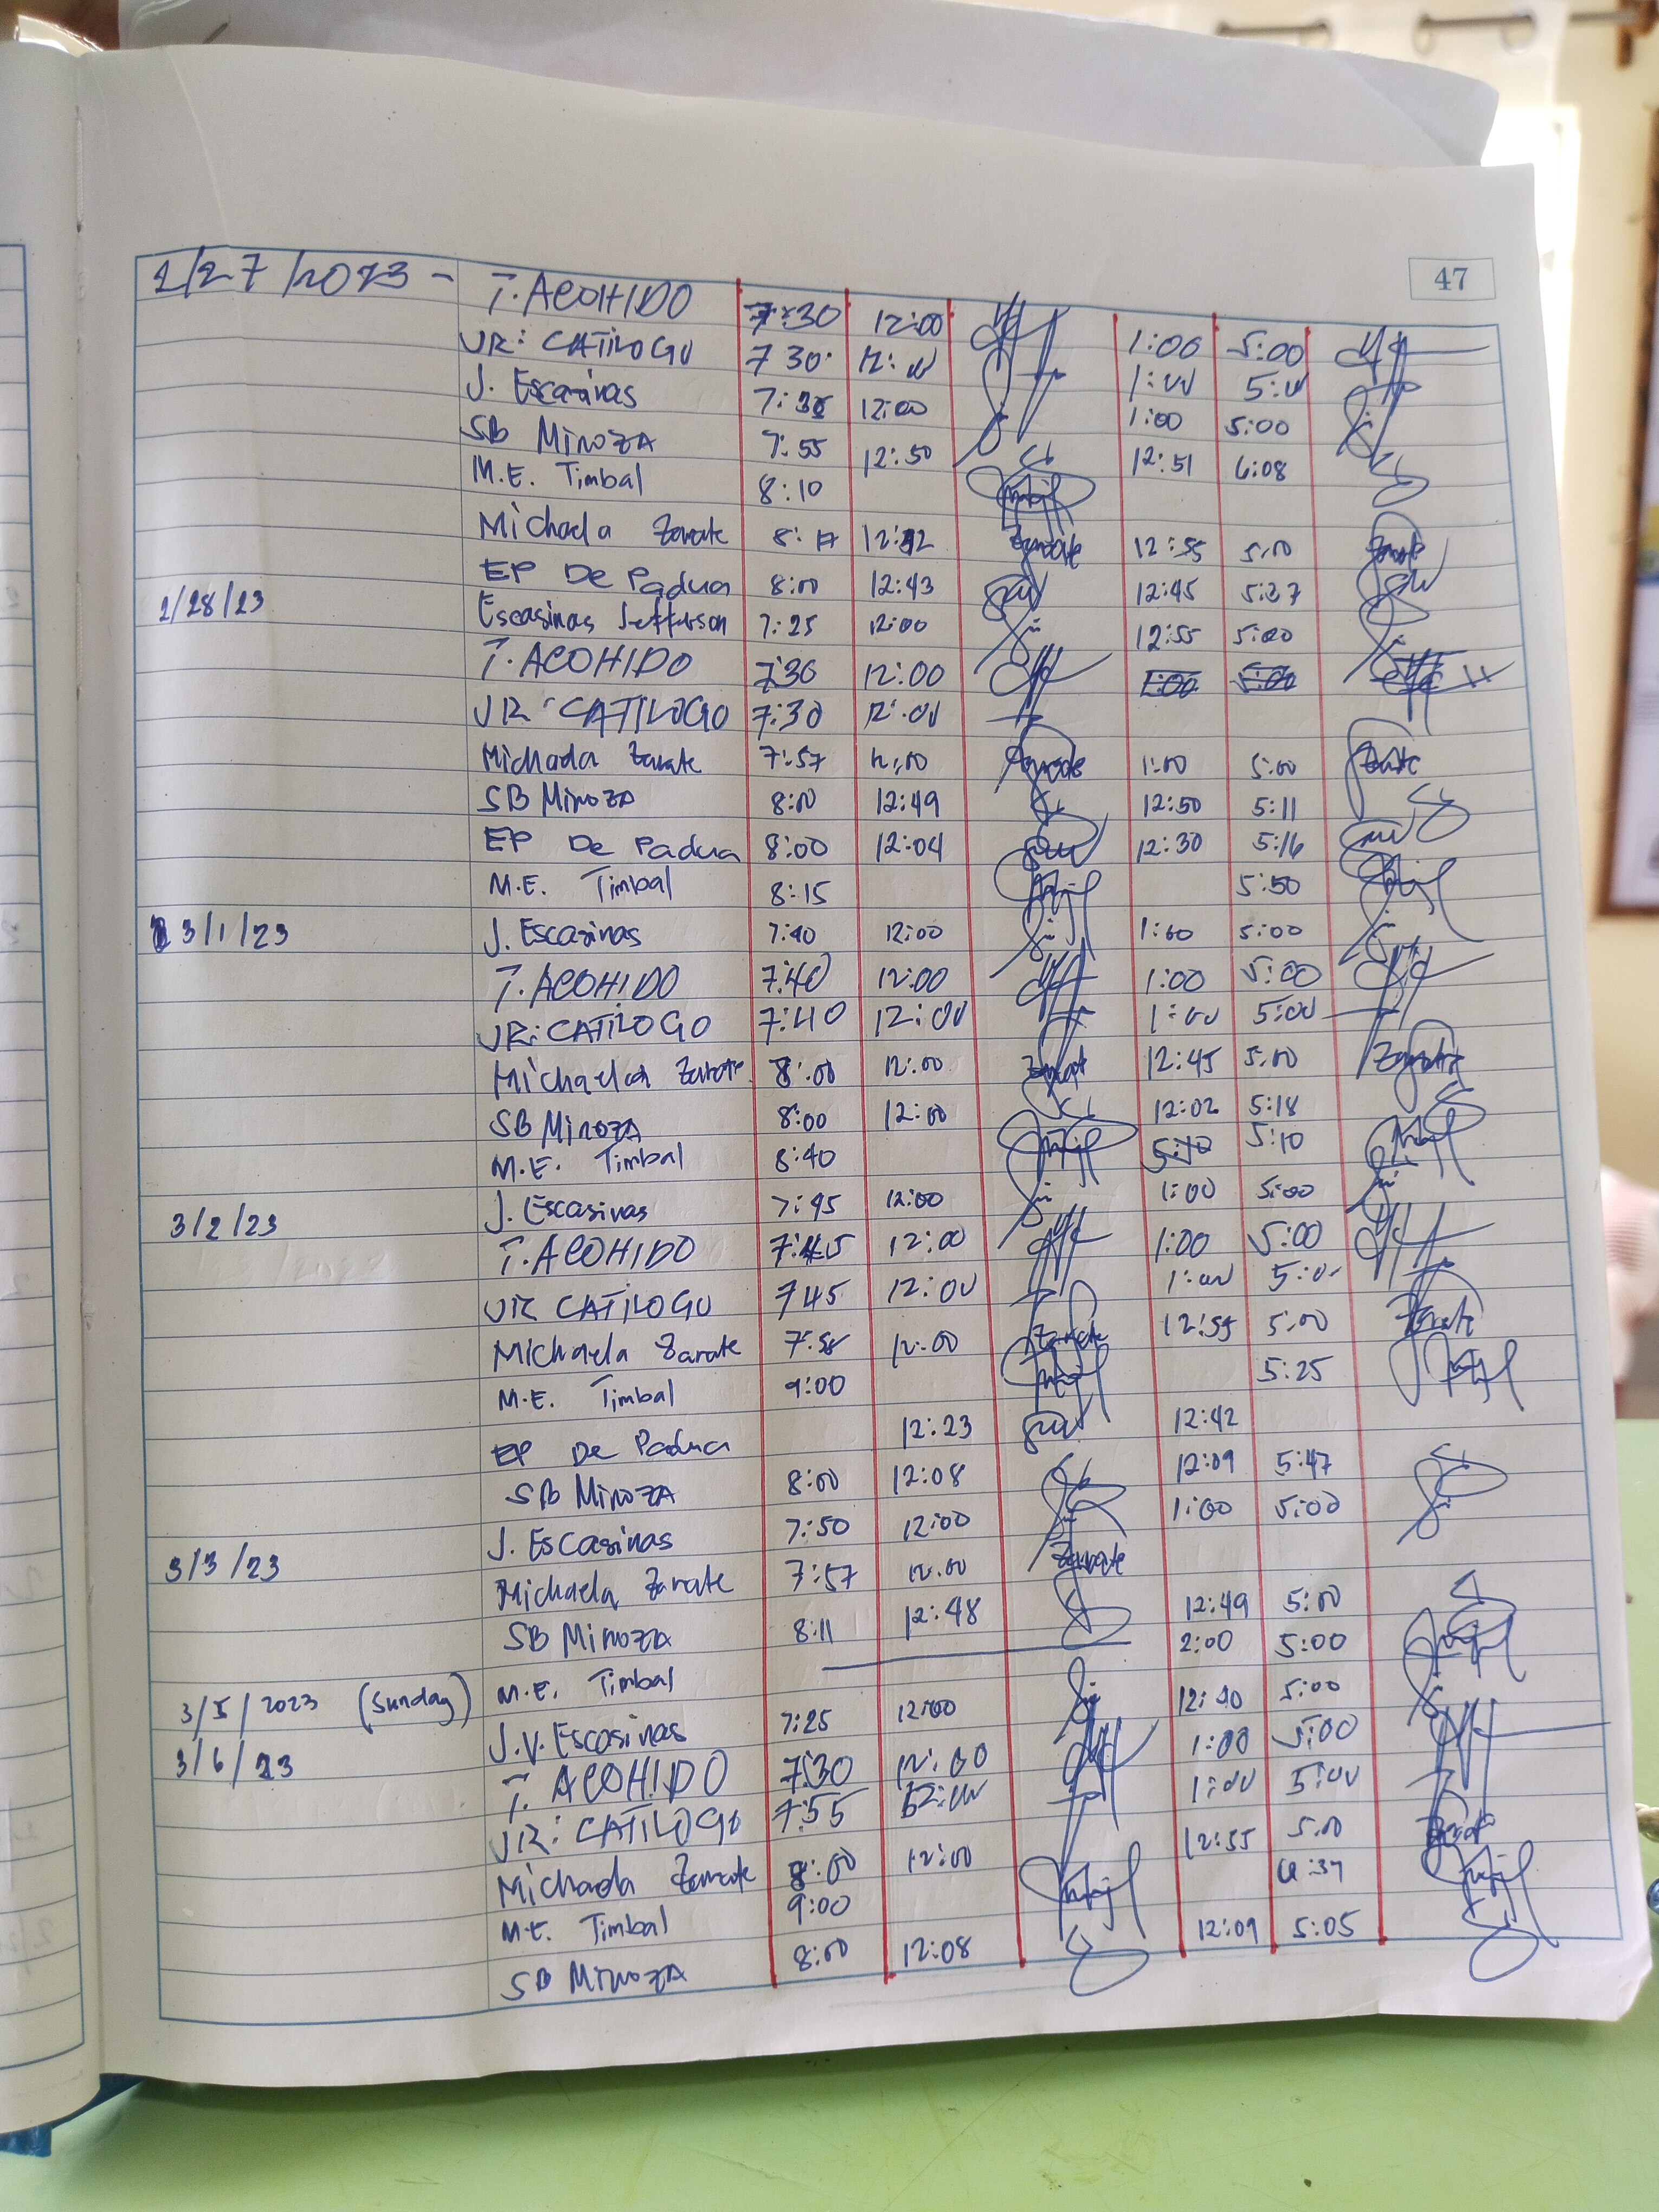 47
2/27/2023 - T. ACOHIDO 7:30 12:00 1:00 5:00
JR: CATILOGO 730 12:00 1:00 5:00
J. Escasinas 7:30 12:00 1:00 5:00
SB MINOZA 7:55 12:50 12:51 6:08
M.E. Timbal 8:10
Michaela Zarate 8:17 12:12 12:55 5:00
EP De Padua 8:00 12:43 12:45 5:27
2/28/23 Escasinas Jefferson 7:25 12:00 12:55 5:00
T. ACOHIDO 7:30 12:00 1:00 5:00
JR CATILOGO 7:30 12:00
Michaela Zarate 7:57 12:00 1:00 5:00
SB MINOZA 8:00 12:49 12:50 5:11
EP De Padua 8:00 12:04 12:30 5:16
M.E. Timbal 8:15 5:50
3/1/23 J. Escasinas 7:40 12:00 1:00 5:00
T. ACOHIDO 7:40 12:00 1:00 5:00
JR: CATILOGO 7:40 12:00 1:00 5:00
Michaela Zarate 8:00 12:00 12:45 5:00
SB MINOZA 8:00 12:00 12:02 5:18
M.E. Timbal 8:40 5:10 5:10
3/2/23 J. Escasinas 7:45 12:00 1:00 5:00
T. ACOHIDO 7:45 12:00 1:00 5:00
JR CATILOGO 745 12:00 1:00 5:00
Michaela Zarate 7:58 12:00 12:55 5:00
M.E. Timbal 9:00 5:25
EP De Padua 12:23 12:42
SB MINOZA 8:00 12:08 12:09 5:47
3/3/23 J. Escasinas 7:50 12:00 1:00 5:00
Michaela Zarate 7:57 12:00
SB MINOZA 8:11 12:48 12:49 5:00
3/5/2023 (Sunday) M.E. Timbal 2:00 5:00
3/6/23 J.V. Escasinas 7:25 12:00 12:40 5:00
T. ACOHIDO 7:30 12:00 1:00 5:00
JR: CATILOGO 7:55 12:00 1:00 5:00
Michaela Zarate 8:00 12:00 12:55 5:00
M.E. Timbal 9:00
SB MINOZA 8:00 12:08 12:09 5:05